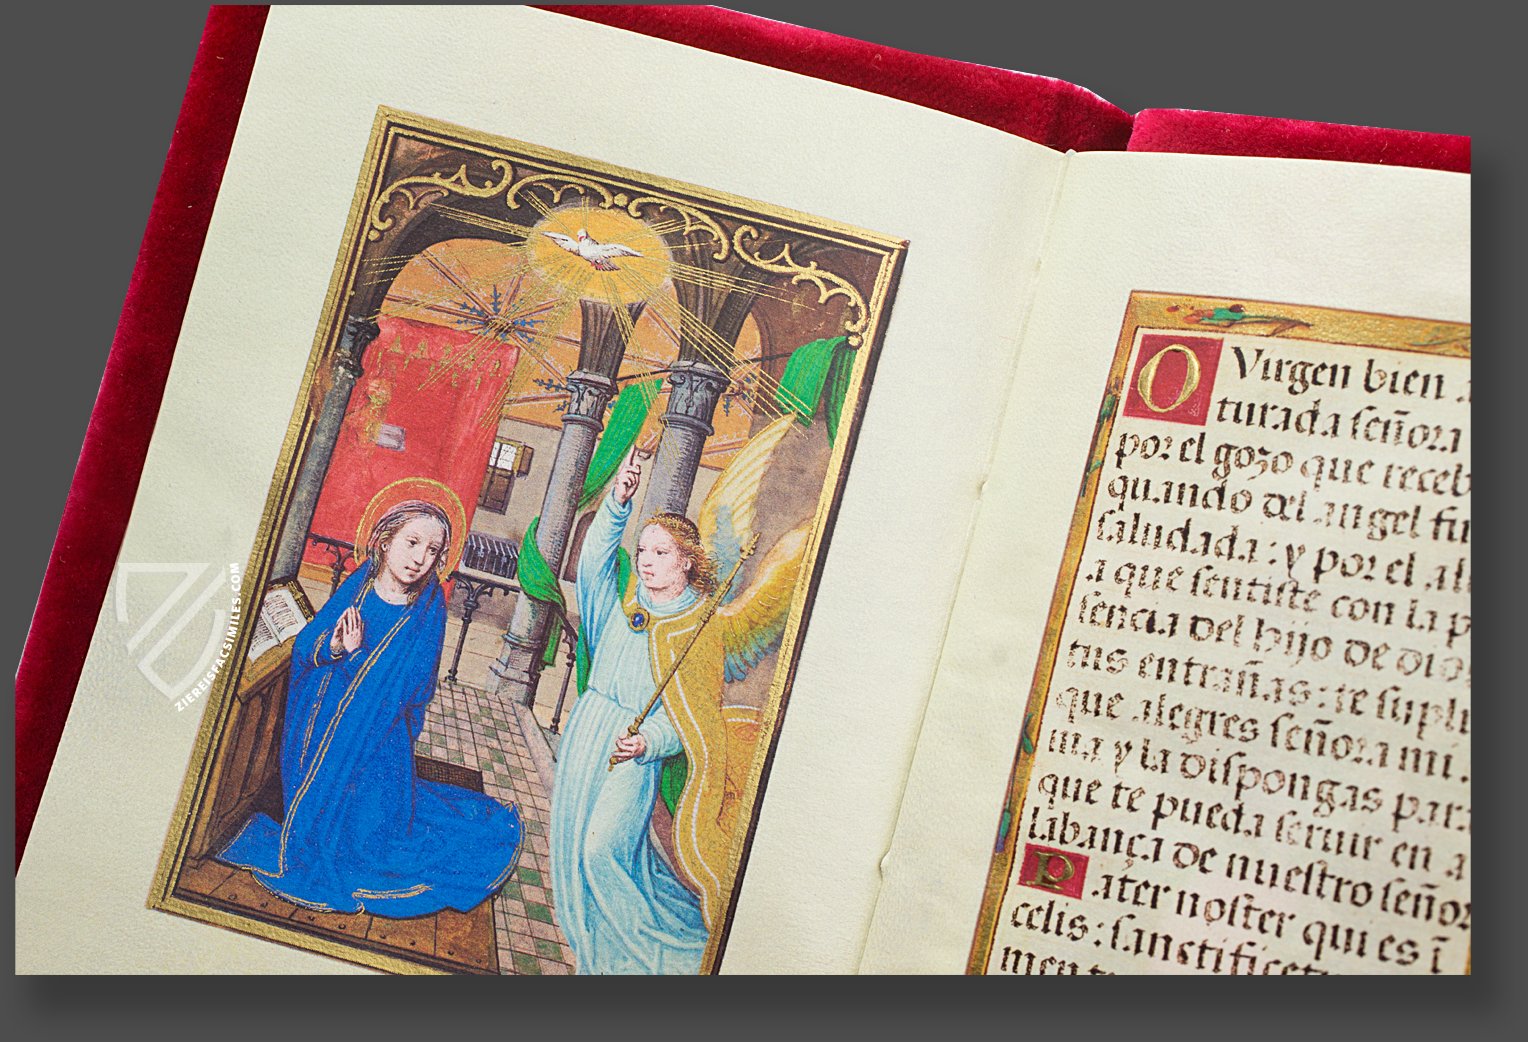 O Virgen bien a
turada señora
por el gozo que receb
quando del angel fu
saludada: y por el al
a que sentiste con la p
sencia del hijo de dio
tus entrañas: te suplı
que alegres señora mi
ma y la dispongas para
que te pueda seruir en a
labança de nuestro señor
Pater noster qui es ī
celis: sanctificet
men tu
ZIEREISFACSIMILES.COM